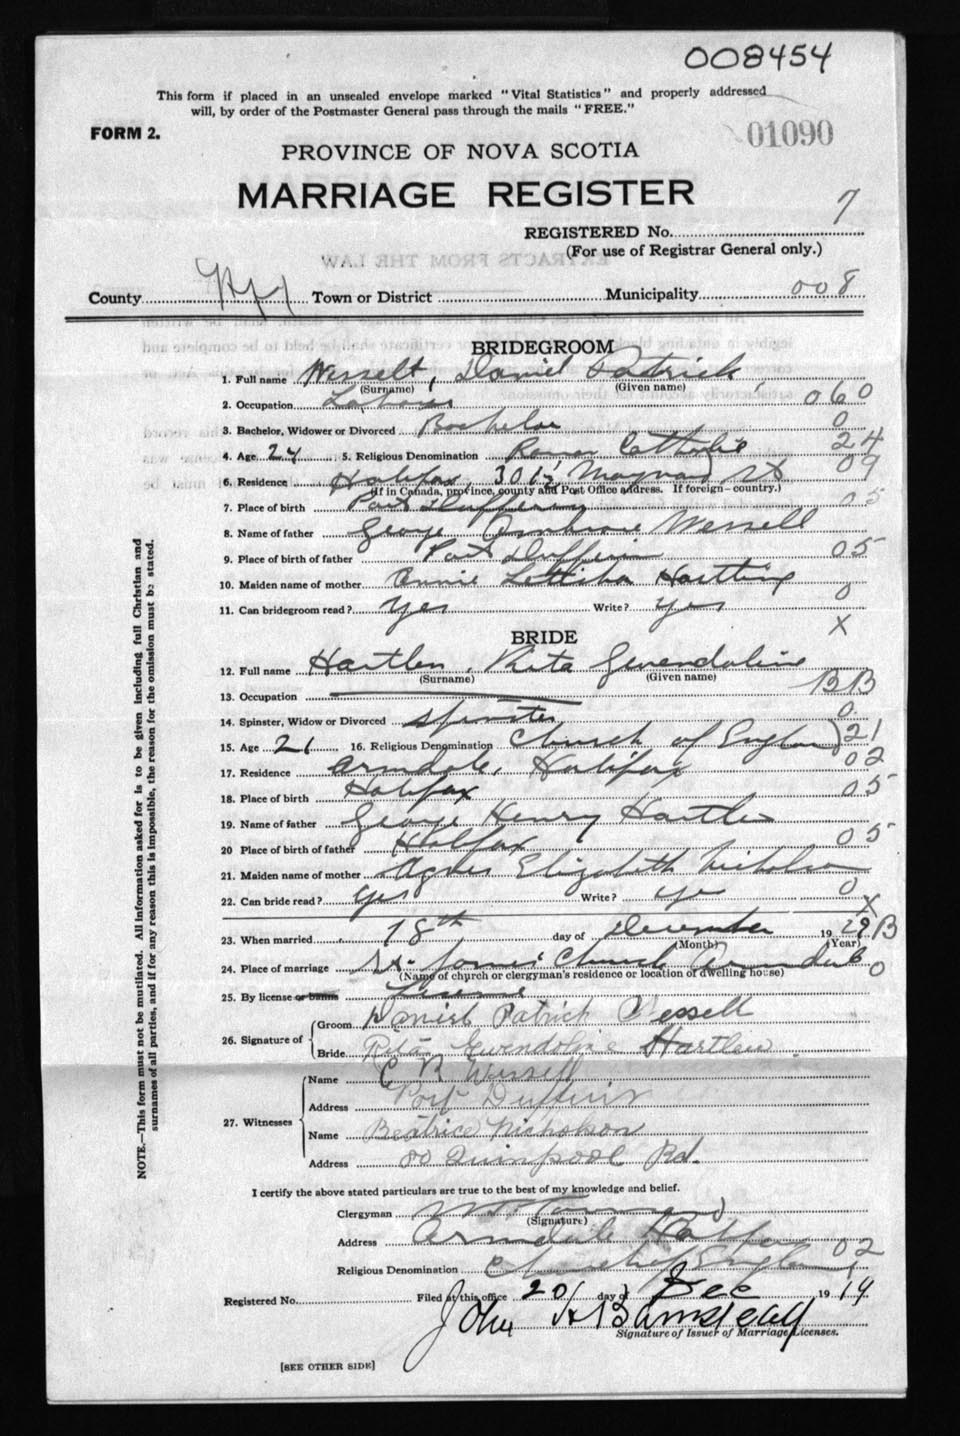 008454
This form if placed in an unsealed envelope marked "Vital Statistics" and properly addressed
will, by order of the Postmaster General pass through the mails "FREE."
FORM 2.
01090
PROVINCE OF NOVA SCOTIA
MARRIAGE REGISTER
REGISTERED No. 7
(For use of Registrar General only.)
County Hfx Town or District Municipality 008
BRIDEGROOM
1. Full name Wessell, Daniel Patrick
(Surname) (Given name)
2. Occupation Laborer 060
3. Bachelor, Widower or Divorced Bachelor 0
4. Age 24 5. Religious Denomination Roman Catholic 24
6. Residence Halifax, 301½ Maynard St 09
(If in Canada, province, county and Post Office address. If foreign—country.)
7. Place of birth Port Dufferin 05
8. Name of father George Ambrose Wessell
9. Place of birth of father Port Dufferin 05
10. Maiden name of mother Annie Lettitia Hartling
11. Can bridegroom read? Yes Write? Yes 0
X
BRIDE
12. Full name Hartlen, Rita Gwendoline
(Surname) (Given name)
13. Occupation BB
14. Spinster, Widow or Divorced Spinster 0
15. Age 21 16. Religious Denomination Church of England 21
17. Residence Armdale, Halifax 02
18. Place of birth Halifax 05
19. Name of father George Henry Hartlen
20 Place of birth of father Halifax 05
21. Maiden name of mother Agnes Elizabeth Nicholson
22. Can bride read? Yes Write? Yes 0
X
23. When married 18th day of December 1929 B
(Month) (Year)
24. Place of marriage St. James Church Armdale 0
(Name of church or clergyman's residence or location of dwelling house)
25. By license or banns License
26. Signature of Groom Daniel Patrick Wessell
Bride Rita Gwendoline Hartlen
27. Witnesses Name C R Wessell
Address Port Dufferin
Name Beatrice Nicholson
Address Quinpool Rd.
I certify the above stated particulars are true to the best of my knowledge and belief.
Clergyman
(Signature)
Address Armdale Halifax 02
Religious Denomination Church of England
Registered No. Filed at this office 20 day of Dec 19
John H Barnstead
Signature of Issuer of Marriage Licenses.
[SEE OTHER SIDE]
NOTE.—This form must not be mutilated. All information asked for is to be given including full Christian and
surnames of all parties, and if for any reason this is impossible, the reason for the omission must be stated.